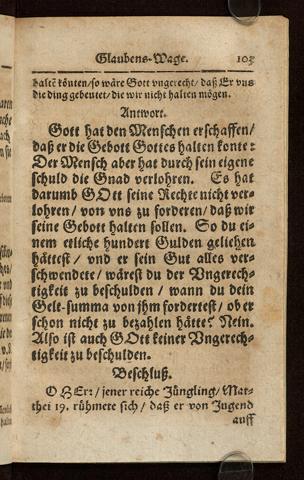 Glaubens-Wage. 103
haltẽ könten/ so wäre Gott vngerecht/ daß Er vns
die ding gebeutet/ die wir nicht halten mögen.
Antwort.
Gott hat den Menschen erschaffen/
daß er die Gebott Gottes halten konte:
Der Mensch aber hat durch sein eigene
schuld die Gnad verlohren. Es hat
darumb GOtt seine Rechte nicht ver-
lohren/ von vns zu forderen/ daß wir
seine Gebott halten sollen. So du ei-
nem etliche hundert Gulden geliehen
hättest/ vnd er sein Gut alles ver-
schwendete/ wärest du der Vngerech-
tigkeit zu beschulden/ wann du dein
Gelt-summa von jhm fordertest/ ob er
schon nicht zu bezahlen hätte? Nein.
Also ist auch GOtt keiner Vngerech-
tigkeit zu beschulden.
Beschluß.
O HErr/ jener reiche Jüngling/ Mat-
thei 19. rühmete sich/ daß er von Jugend
auff